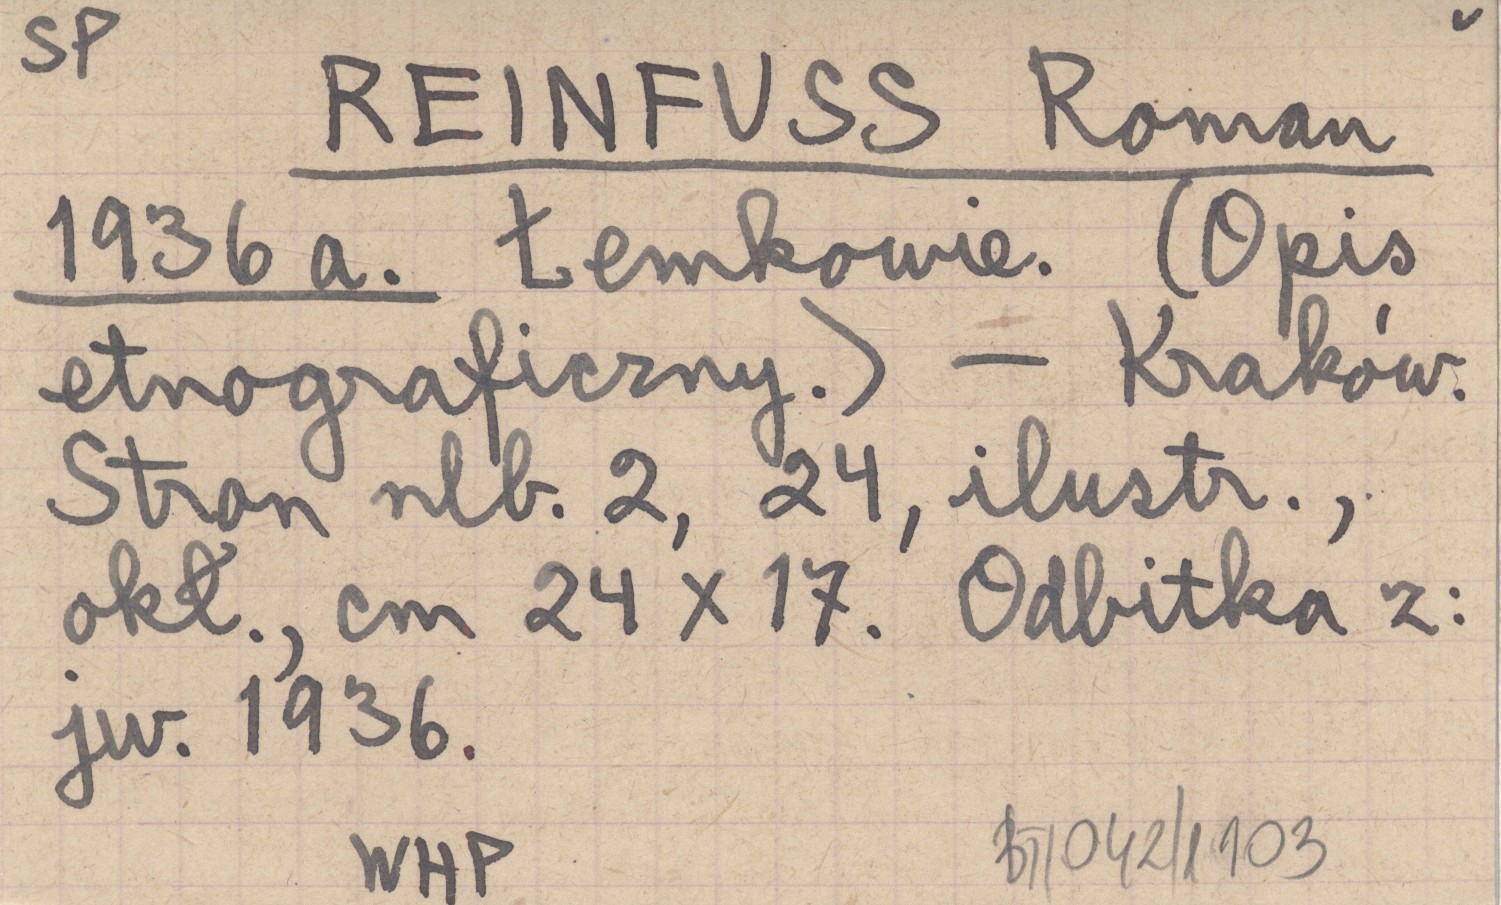 SP
REINFUSS Roman
1936 a. Łemkowie. (Opis
etnograficzny.) — Kraków.
Stron nlb. 2, 24, ilustr.,
okł., cm 24 x 17. Odbitka z:
jw. 1936.
WHP
103